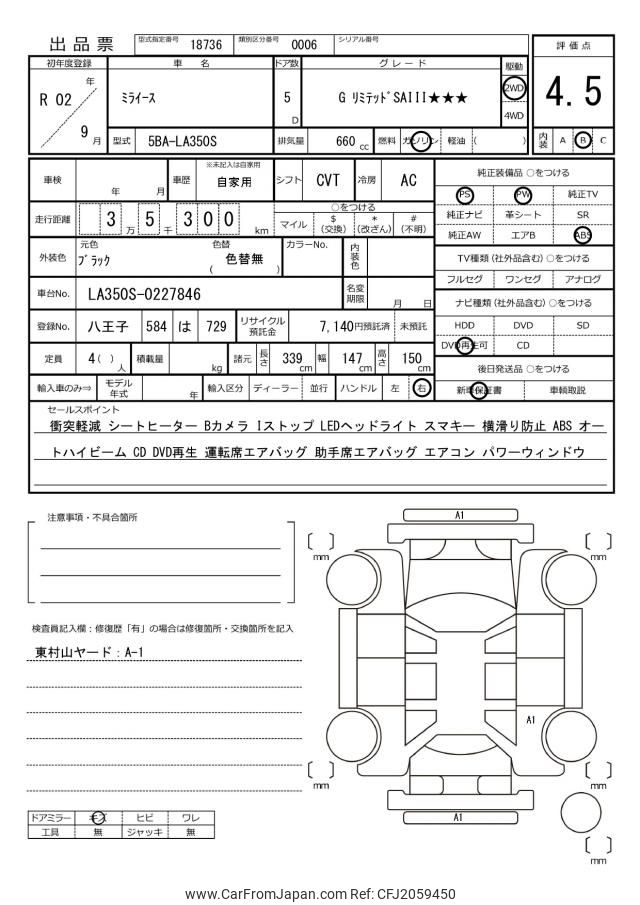 出品票 型式指定番号 18736 類別区分番号 0006 シリアル番号
評価点
4.5
初年度登録 車名 ドア数 グレード 駆動
R 02 年 9 月 ﾐﾗｲｰｽ 5 D G ﾘﾐﾃｯﾄﾞSAIII★★★ 2WD
4WD
型式 5BA-LA350S 排気量 660 cc 燃料 ガソリン 軽油 ( )
内装 A B C
車検 年 月 車歴 ※未記入は自家用 自家用 シフト CVT 冷房 AC
純正装備品 ○をつける
PS PW 純正TV
純正ナビ 革シート SR
純正AW エアB ABS
走行距離 3 万 5 千 3 0 0 km
○をつける
マイル $ (交換) * (改ざん) # (不明)
外装色 元色 ﾌﾞﾗｯｸ 色替 ( 色替無 ) カラーNo. 内装色
TV種類 (社外品含む) ○をつける
フルセグ ワンセグ アナログ
車台No. LA350S-0227846 名変期限 月 日
ナビ種類 (社外品含む) ○をつける
HDD DVD SD
DVD再生可 CD
登録No. 八王子 584 は 729 リサイクル預託金 7,140円預託済 未預託
定員 4 ( ) 人 積載量 kg 諸元 長さ 339 cm 幅 147 cm 高さ 150 cm
後日発送品 ○をつける
新車保証書 車輌取説
輸入車のみ⇒ モデル年式 年 輸入区分 ディーラー 並行 ハンドル 左 右
セールスポイント
衝突軽減 シートヒーター Bカメラ Iストップ LEDヘッドライト スマキー 横滑り防止 ABS オー
トハイビーム CD DVD再生 運転席エアバッグ 助手席エアバッグ エアコン パワーウィンドウ
注意事項・不具合箇所
検査員記入欄：修復歴「有」の場合は修復箇所・交換箇所を記入
東村山ヤード：A-1
A1
mm
mm
A1
mm
mm
A1
mm
ドアミラー キズ ヒビ ワレ
工具 無 ジャッキ 無
www.CarFromJapan.com Ref: CFJ2059450